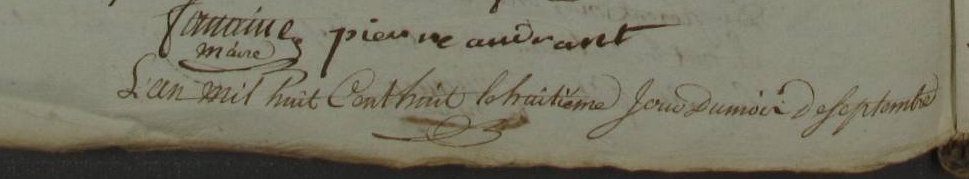 maire pierre audrant
L'an mil huit Cent huit le huitiéme Jour Dumois Deseptembre